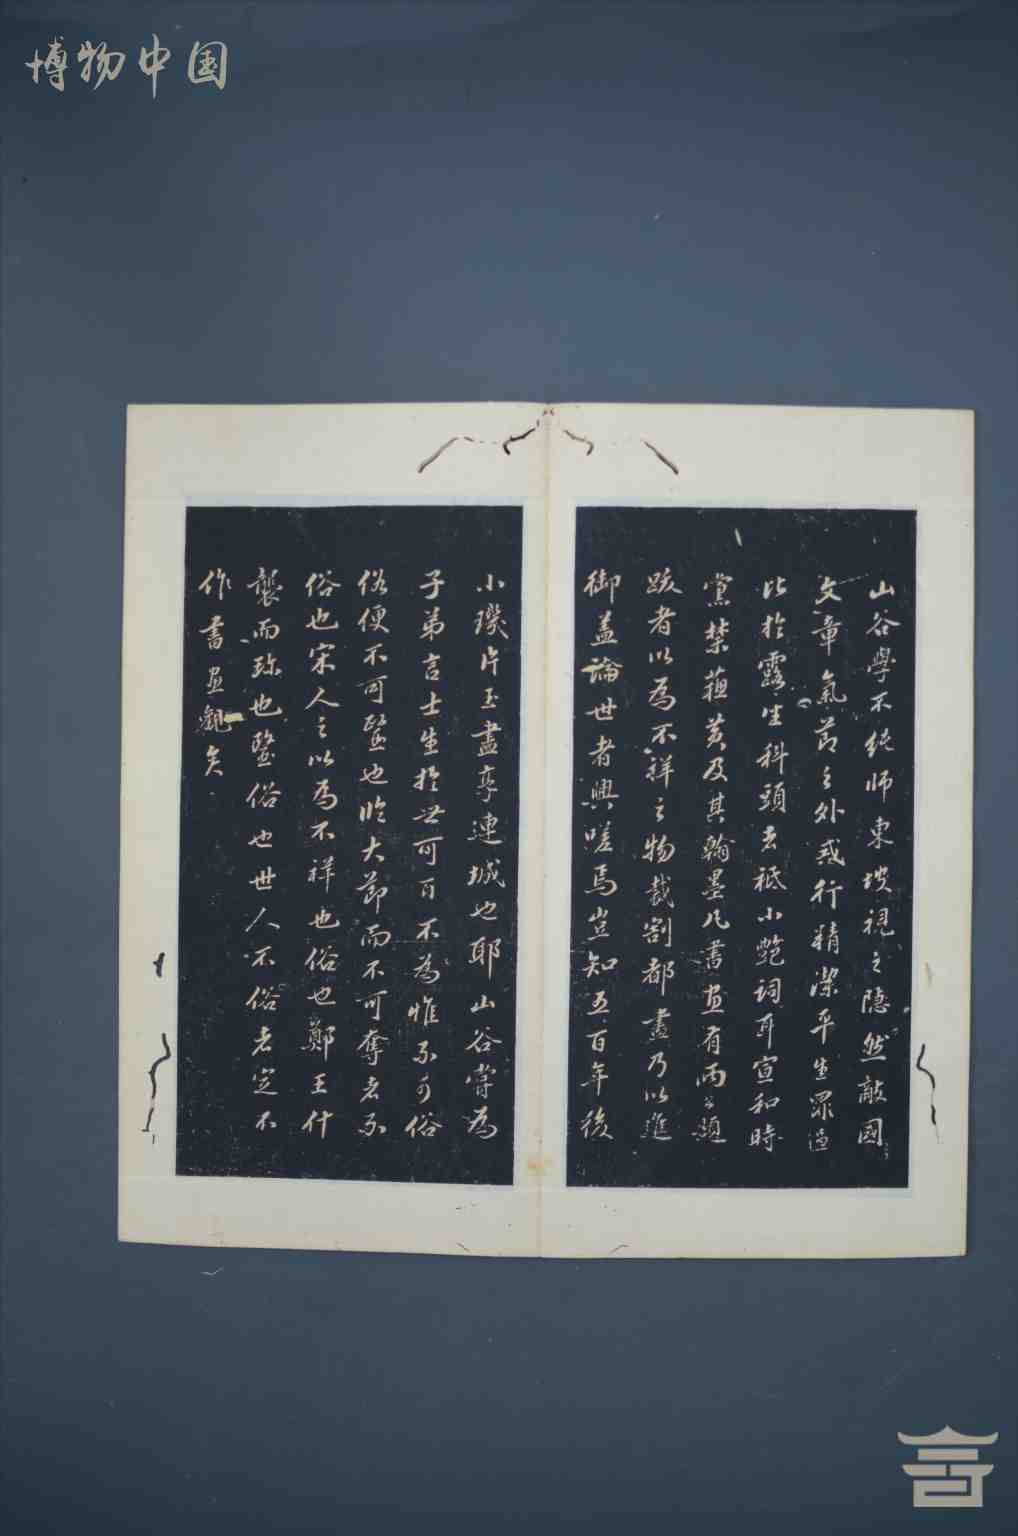 博物中国
山谷學不純師東坡視之隱然敵國
文章氣節之外戒行精潔平生罪過
比於露坐科頭去祗小艷詞耳宣和時
黨禁蘇黃及其翰墨凡書畫有兩公題
跋者以為不祥之物裁割都盡乃以進
御蓋論世者興嗟焉豈知五百年後
小璣片玉盡享連城也耶山谷嘗為
子弟言士生於世可百不為惟不可俗
俗便不可醫也臨大節而不可奪者不
俗也宋人之以為不祥也俗也鄭王什
襲而珍也醫俗也世人不俗者定不
作書畫觀矣